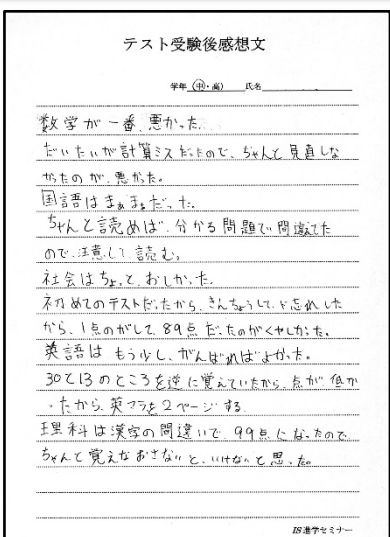 テスト受験後感想文
学年 (中・高) 氏名
数学が一番、悪かった。
だいたいが計算ミスだったので、ちゃんと見直しな
かったのが、悪かった。
国語はまぁまぁだった。
ちゃんと読めば、分かる問題で間違えてた
ので、注意して読む。
社会はちょっと、おしかった。
初めてのテストだったから、きんちょうして、ど忘れした
から、1点のがして、89点だったのがくやしかった。
英語はもう少し、がんばればよかった。
30と13のところを逆に覚えていたから、点が、低か
ったから、英プラを2ページする。
理科は漢字の間違いで、99点になったので
ちゃんと覚えなおさないと、いけないと思った。
IS進学セミナー